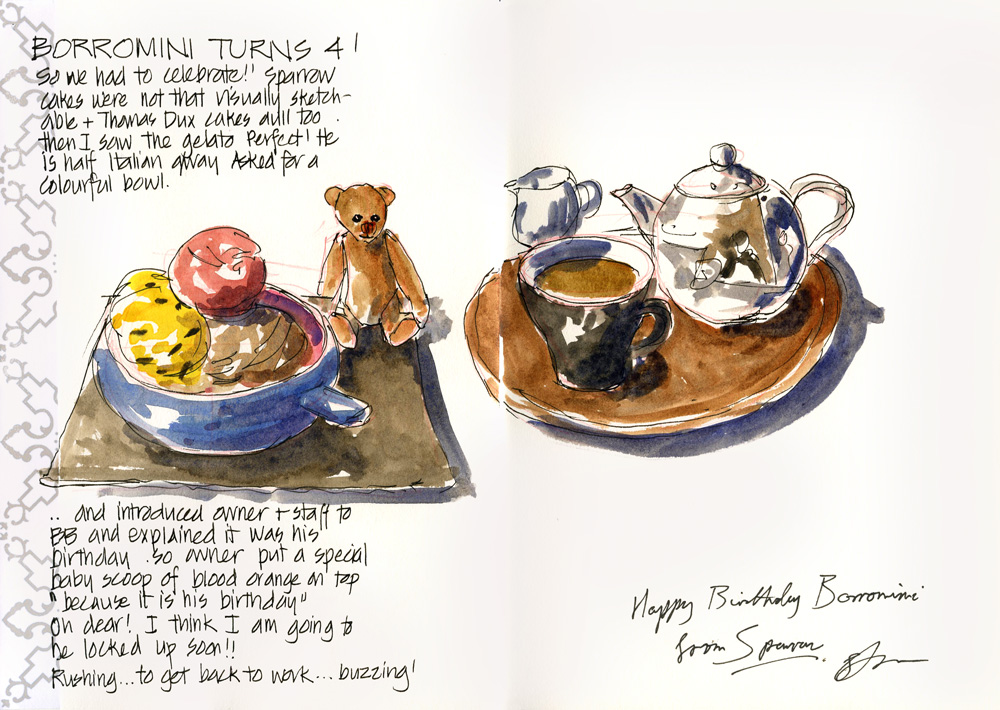 BORROMINI TURNS 4!
So we had to celebrate!! Sparrow
cakes were not that visually sketch-
able + Thomas Dux cakes dull too.
then I saw the gelato Perfect! He
is half Italian anway Asked for a
colourful bowl.
.. and introduced owner + staff to
BB and explained it was his
birthday. so owner put a special
baby scoop of blood orange on top
"because it is his birthday"
Oh dear! I think I am going to
be locked up soon!!
Rushing...to get back to work... buzzing!
Happy Birthday Borromini
from Sparrow.